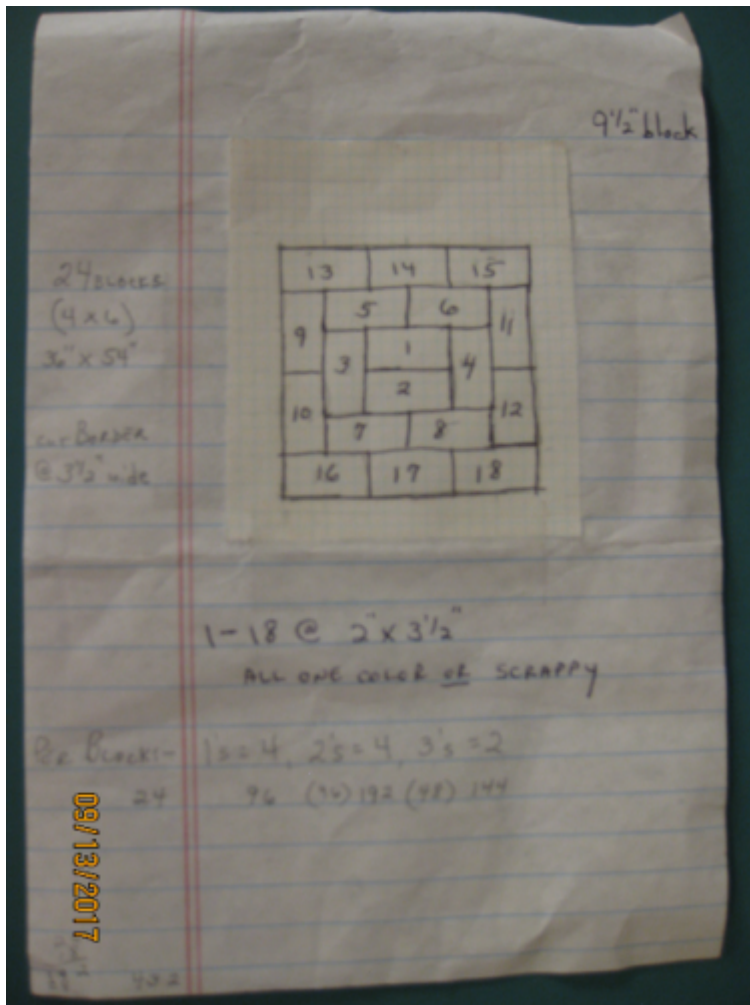 9 1/2" block
24 BLOCKS
(4 x 6)
36" x 54"
CUT BORDER
@ 3 1/2" wide
13 14 15
5 6
9 11
1
3 4
2
10 12
7 8
16 17 18
1-18 @ 2" x 3 1/2"
ALL ONE COLOR OR SCRAPPY
PER BLOCK:- 1's = 4, 2's = 4, 3's = 2
24 96 (96) 192 (48) 144
09/13/2017
432